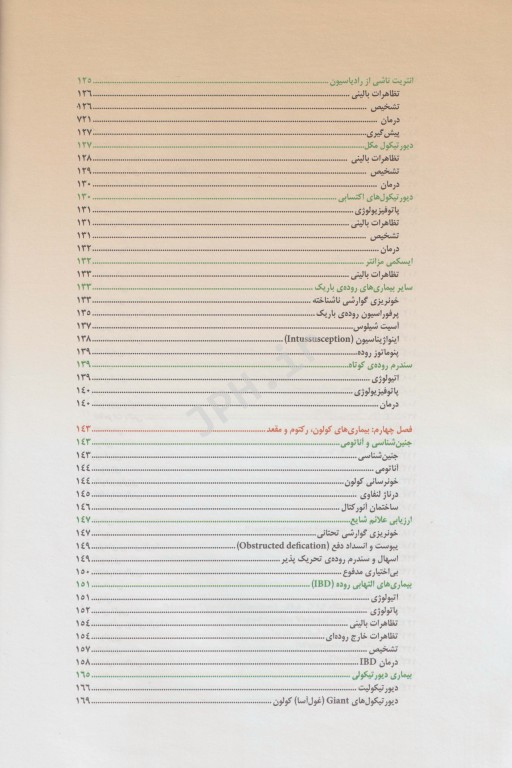 انتریت ناشی از رادیاسیون ........ ۱۲۵
تظاهرات بالینی ........ ۱۲۶
تشخیص ........ ۸۲۶
درمان ........ ۷۲۱
پیش‌گیری ........ ۱۲۷
دیورتیکول مکل ........ ۱۲۷
تظاهرات بالینی ........ ۱۲۸
تشخیص ........ ۱۲۹
درمان ........ ۱۳۰
دیورتیکول‌های اکتسابی ........ ۱۳۰
پاتوفیزیولوژی ........ ۱۳۱
تظاهرات بالینی ........ ۱۳۱
تشخیص ........ ۱۳۱
درمان ........ ۱۳۲
ایسکمی مزانتر ........ ۱۳۲
تظاهرات بالینی ........ ۱۳۲
سایر بیماری‌های روده‌ی باریک ........ ۱۳۳
خونریزی گوارشی ناشناخته ........ ۱۳۳
پرفوراسیون روده‌ی باریک ........ ۱۳۵
آسیت شیلوس ........ ۱۳۷
اینواژیناسیون (Intussusception) ........ ۱۳۸
پنوماتوز روده ........ ۱۳۹
سندرم روده‌ی کوتاه ........ ۱۳۹
اتیولوژی ........ ۱۳۹
پاتوفیزیولوژی ........ ۱۴۰
درمان ........ ۱۴۰
فصل چهارم: بیماری‌های کولون، رکتوم و مقعد ........ ۱۴۳
جنین‌شناسی و آناتومی ........ ۱۴۳
جنین‌شناسی ........ ۱۴۳
آناتومی ........ ۱۴۴
خونرسانی کولون ........ ۱۴۴
درناژ لنفاوی ........ ۱۴۵
ساختمان آنورکتال ........ ۱۴۶
ارزیابی علائم شایع ........ ۱۴۷
خونریزی گوارشی تحتانی ........ ۱۴۷
یبوست و انسداد دفع (Obstructed defication) ........ ۱۴۹
اسهال و سندرم روده‌ی تحریک پذیر ........ ۱۴۹
بی‌اختیاری مدفوع ........ ۱۵۰
بیماری‌های التهابی روده (IBD) ........ ۱۵۱
اتیولوژی ........ ۱۵۱
پاتولوژی ........ ۱۵۲
تظاهرات بالینی ........ ۱۵۴
تظاهرات خارج روده‌ای ........ ۱۵۴
تشخیص ........ ۱۵۷
درمان IBD ........ ۱۵۸
بیماری دیورتیکولی ........ ۱۶۵
دیورتیکولیت ........ ۱۶۶
دیورتیکول‌های Giant (غول‌آسا) کولون ........ ۱۶۹